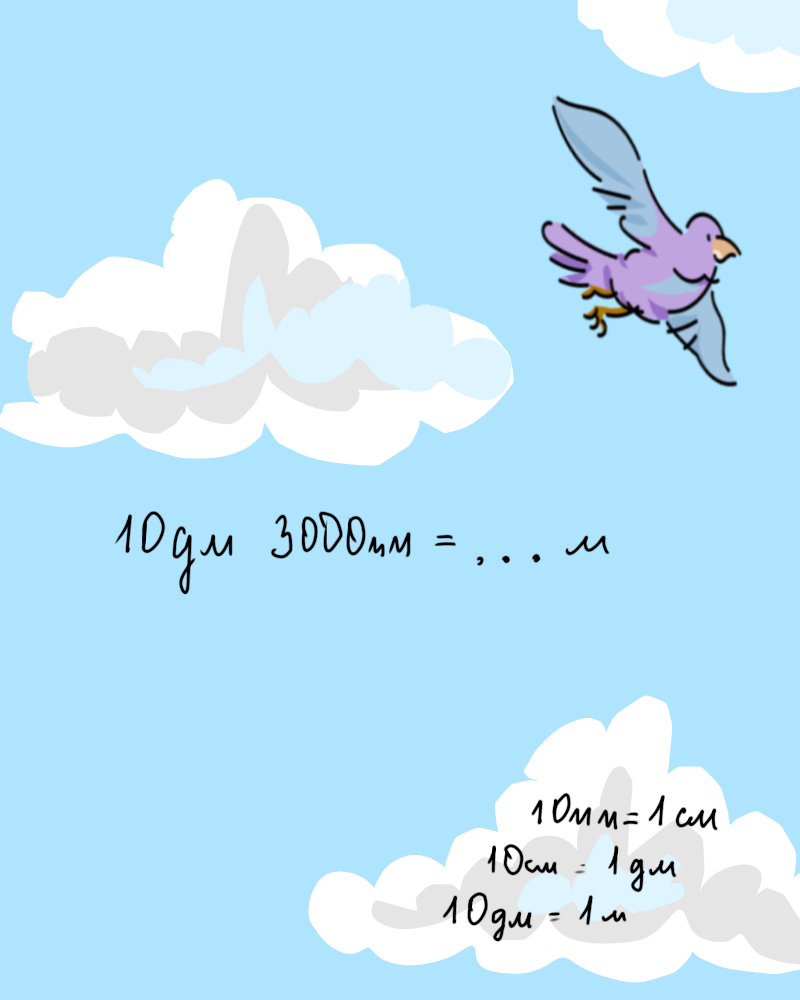 10дм 3000мм = ... м
10мм = 1 см
10см = 1 дм
10дм = 1 м